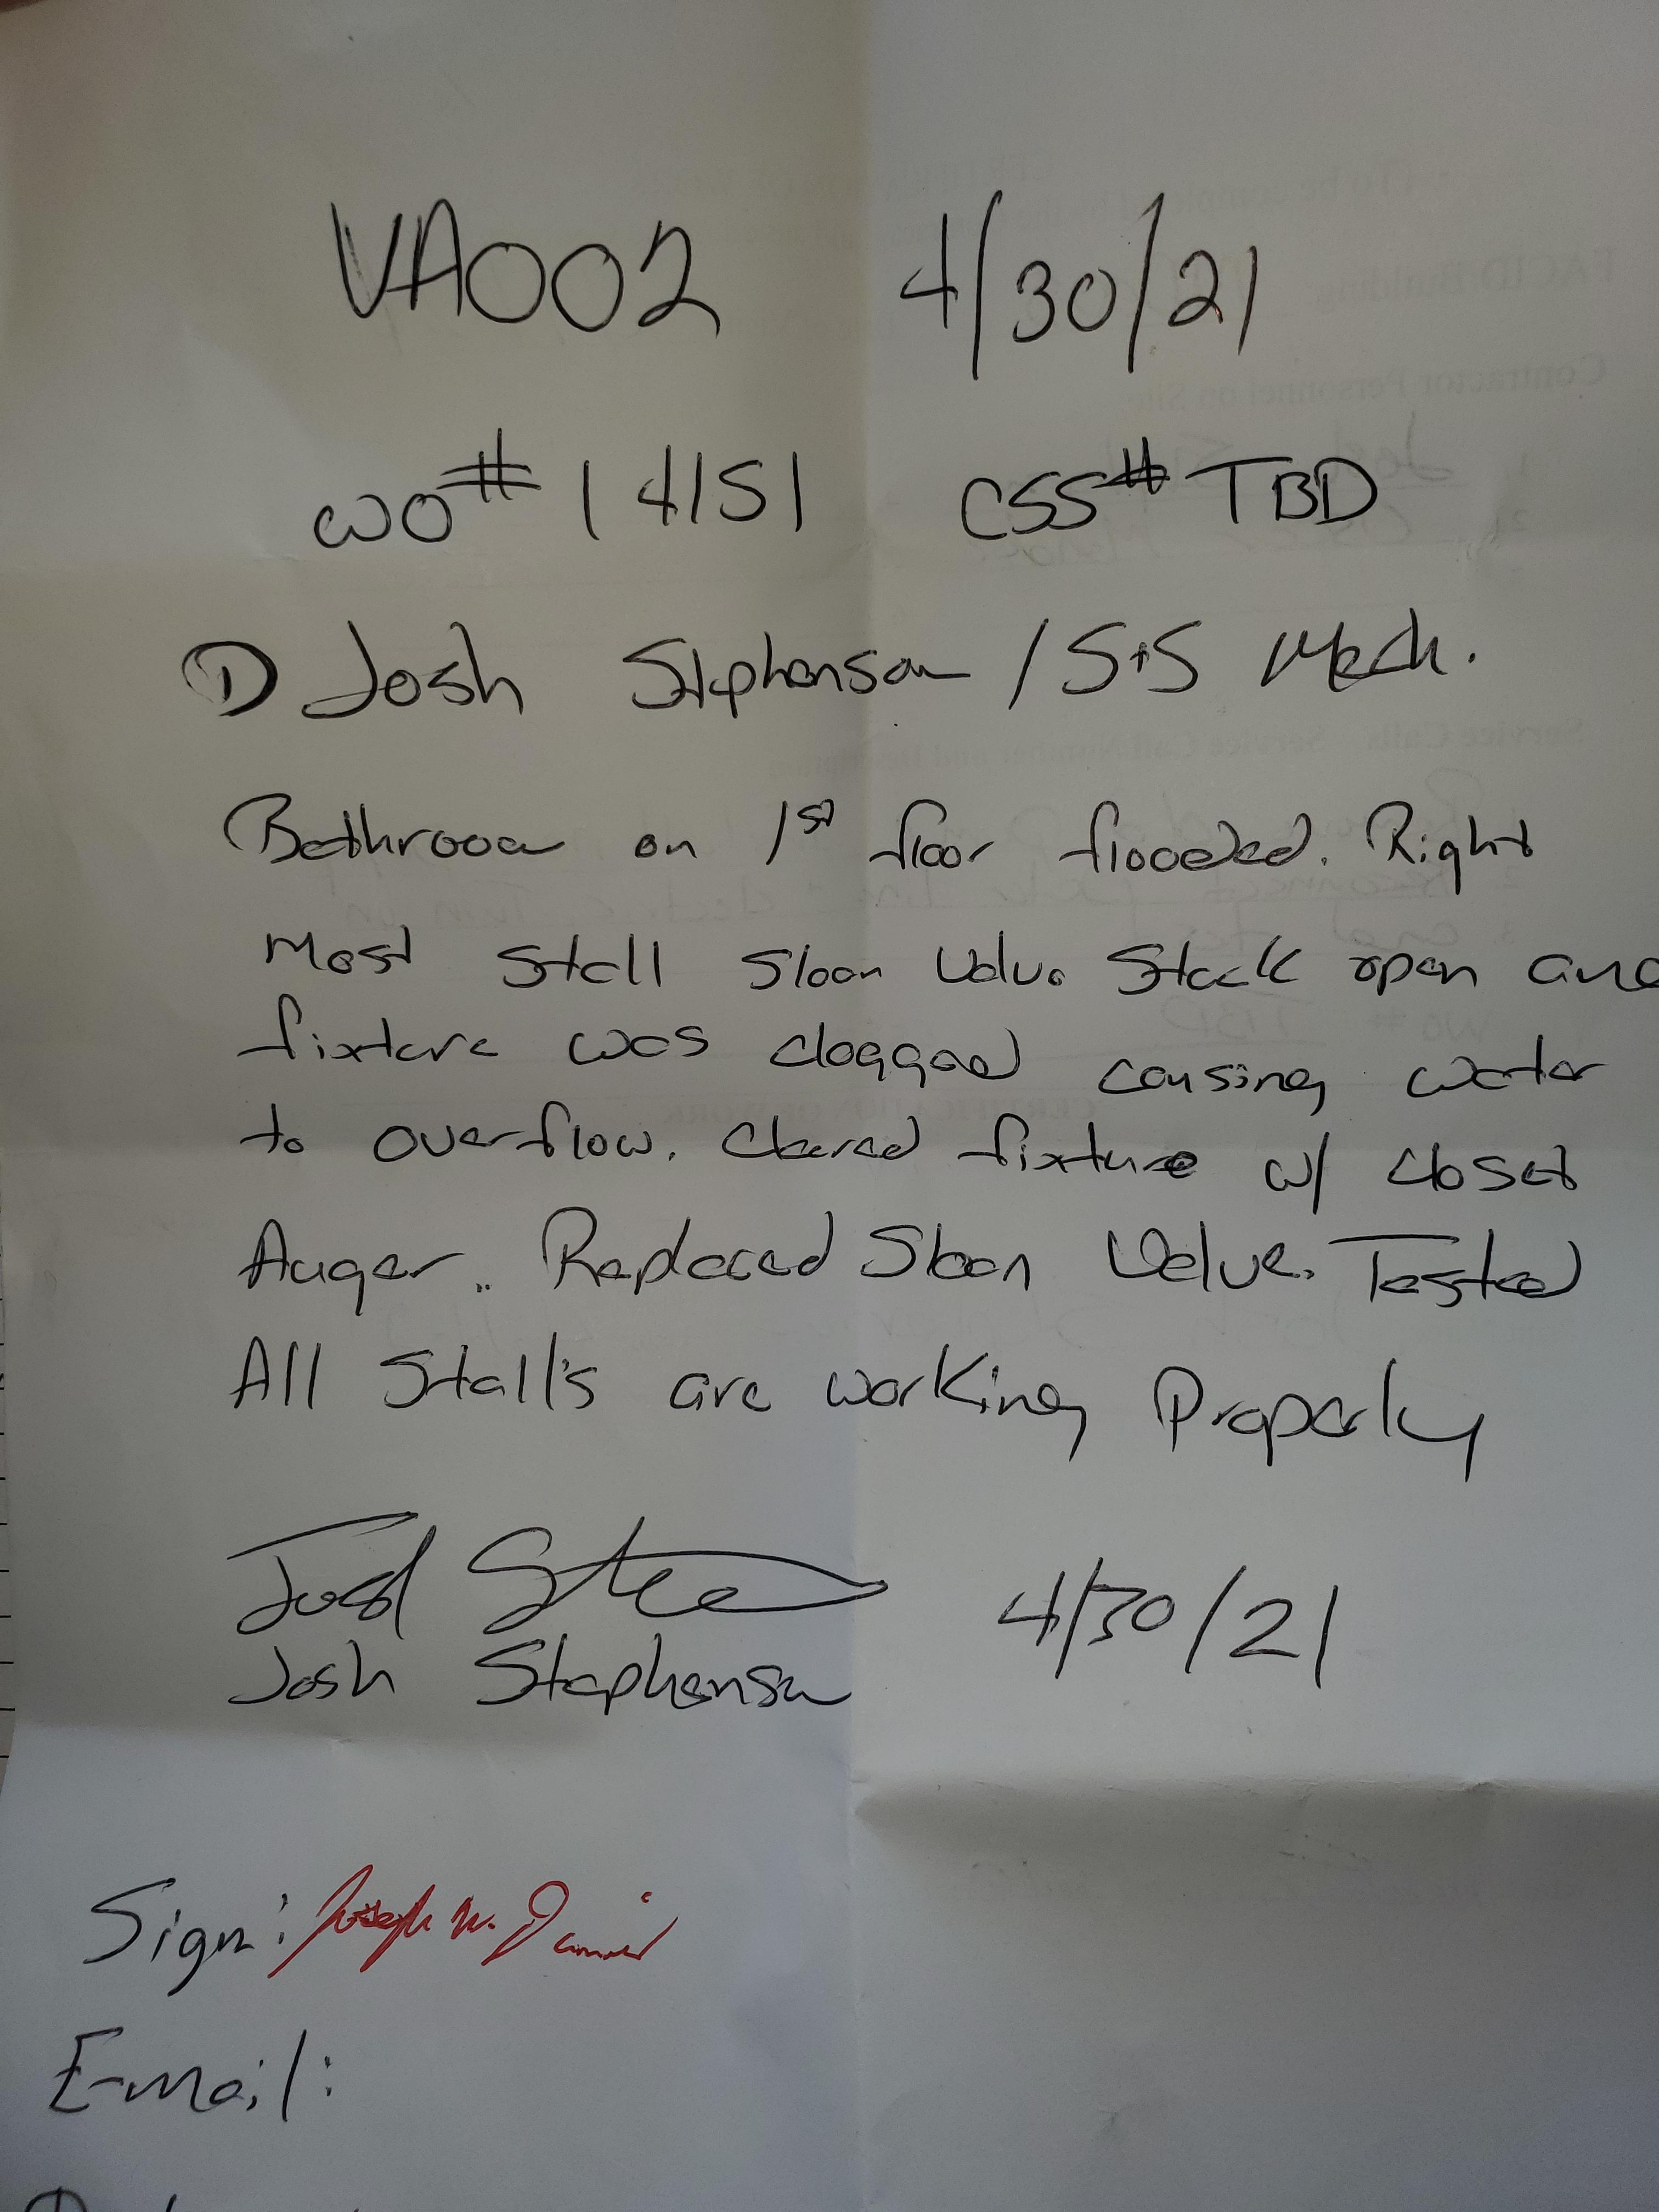 VA002 4/30/21
WO# 14151 CSS# TBD
① Josh Stephenson / S+S Mech.
Bathroom on 1st floor flooded. Right
Most stall Sloan Valve Stuck open and
fixture was clogged causing water
to overflow. Cleared fixture w/ closet
Auger. Replaced Sloan Valve. Tested
All Stall's are working Properly
Josh
Josh Stephenson 4/30/21
Sign: Joseph W.
E-mail: